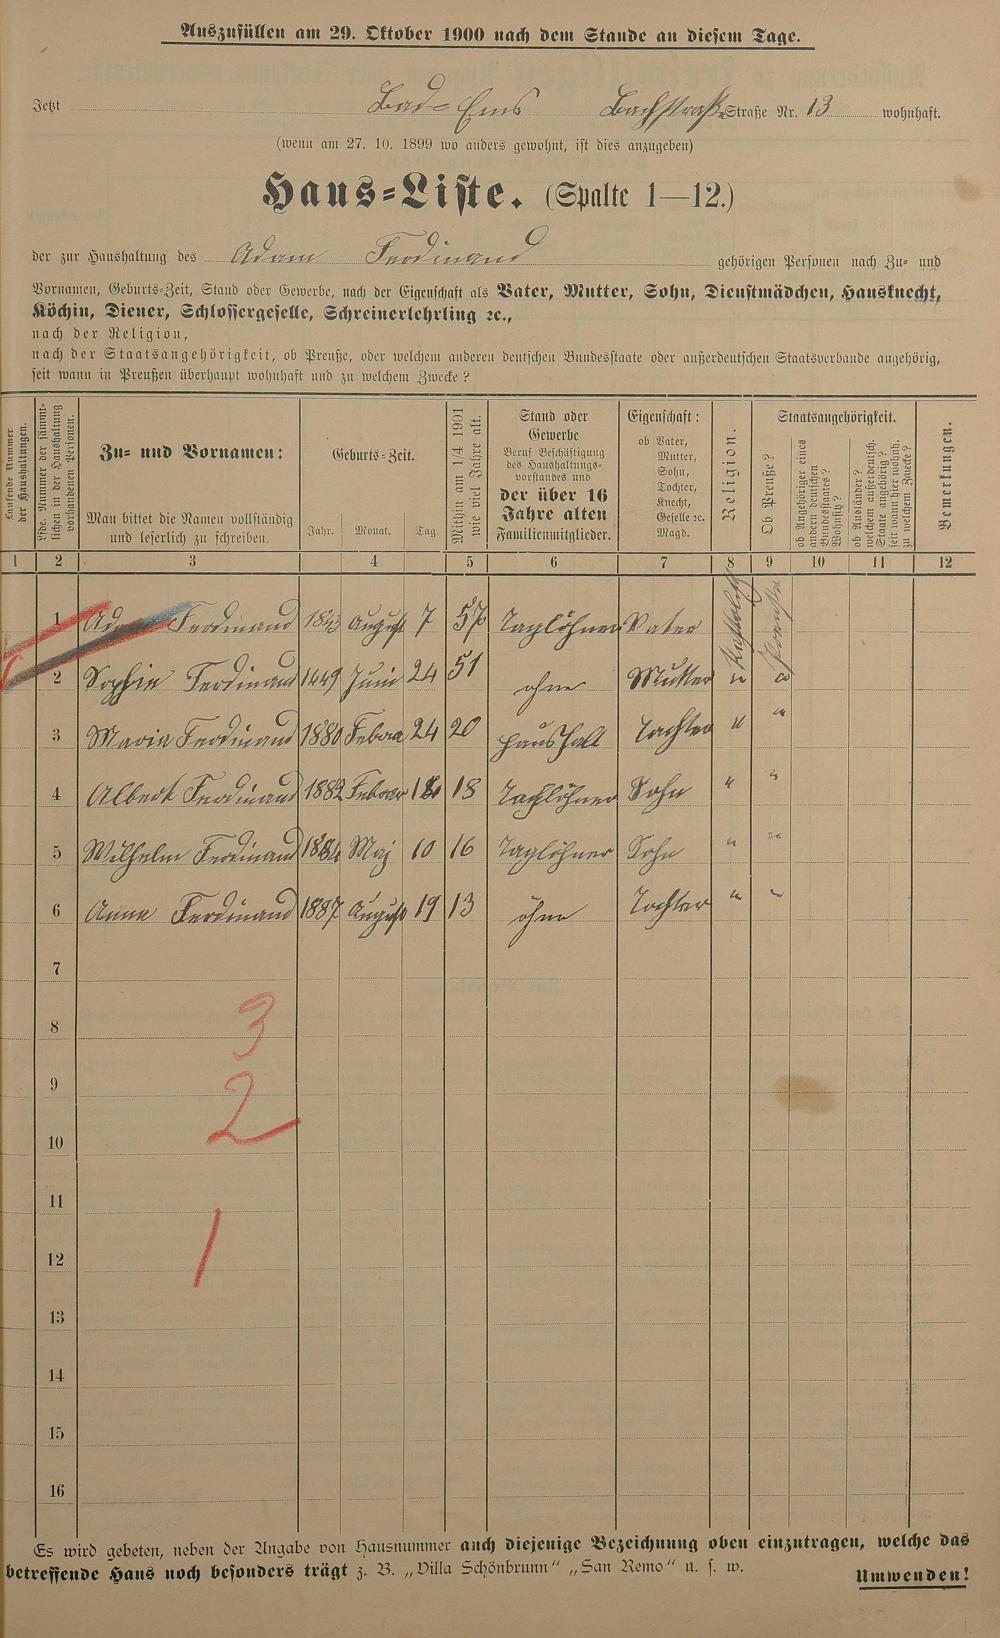 Auszufüllen am 29. Oktober 1900 nach dem Stande an diesem Tage.
Jetzt Bad-Ems Bachstraße Straße Nr. 13 wohnhaft.
(wenn am 27. 10. 1899 wo anders gewohnt, ist dies anzugeben)
Haus-Liste. (Spalte 1—12.)
der zur Haushaltung des Adam Ferdinand gehörigen Personen nach Zu- und
Vornamen, Geburts-Zeit, Stand oder Gewerbe, nach der Eigenschaft als Vater, Mutter, Sohn, Dienstmädchen, Hausknecht,
Köchin, Diener, Schlossergeselle, Schreinerlehrling ꝛc.,
nach der Religion,
nach der Staatsangehörigkeit, ob Preuße, oder welchem anderen deutschen Bundesstaate oder außerdeutschen Staatsverbande angehörig,
seit wann in Preußen überhaupt wohnhaft und zu welchem Zwecke?
Laufende Nummer
der Haushaltungen.
Lfde. Nummer der sämmt-
lichen in der Haushaltung
vorhandenen Personen.
Zu- und Vornamen:
Man bittet die Namen vollständig
und leserlich zu schreiben.
Geburts-Zeit.
Jahr. Monat. Tag.
Mithin am 1/4 1901
wie viel Jahre alt.
Stand oder
Gewerbe
Beruf Beschäftigung
des Haushaltungs-
vorstandes und
der über 16
Jahre alten
Familienmitglieder.
Eigenschaft:
ob Vater,
Mutter,
Sohn,
Tochter,
Knecht,
Geselle ꝛc.
Magd.
Religion.
Staatsangehörigkeit.
Ob Preuße?
ob Angehöriger eines
andern deutschen
Bundesstaates?
Wohnsitz?
ob Ausländer?
welchem außerdeutsch.
Staate angehörig?
seit wann hier wohnh.
zu welchem Zwecke?
Bemerkungen.
1 2 3 4 5 6 7 8 9 10 11 12
1 Adam Ferdinand 1843 August 7 57 Taglöhner Vater Katholisch Preuße
2 Sophie Ferdinand 1449 Juni 24 51 ohne Mutter " "
3 Maria Ferdinand 1880 24 20 Haushalt Tochter " "
4 Albert Ferdinand 1882 Februar 18 Taglöhner Sohn " "
5 Wilhelm Ferdinand 1884 Maj 10 16 Taglöhner Sohn " "
6 Anna Ferdinand 1887 August 19 13 ohne Tochter " "
7
8
3
9
2
10
11
12
1
13
14
15
16
Es wird gebeten, neben der Angabe von Hausnummer auch diejenige Bezeichnung oben einzutragen, welche das
betreffende Haus noch besonders trägt z. B. „Villa Schönbrunn" „San Remo" u. s. w.
Umwenden!